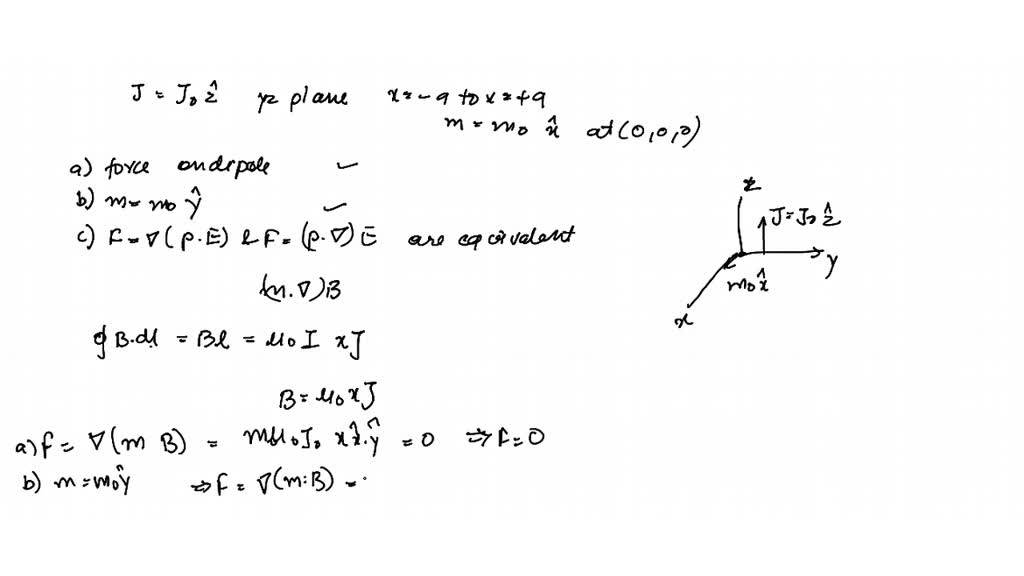 J = J₀ ẑ yz plane x=-a to x=+a
m = m₀ x̂ at (0,0,0)
a) force on dipole ✓
b) m = m₀ ŷ ✓
c) F = ∇(p.E) & F = (p.∇)E are equivalent
(m.∇)B
∮B.dl = Bl = μ₀I xJ
B = μ₀xJ
a) f = ∇(m B) = mμ₀J₀ x x̂.ŷ = 0 ⇒ F=0
b) m = m₀ŷ ⇒ F = ∇(m.B) =
z
J=J₀ẑ
y
m₀x̂
x